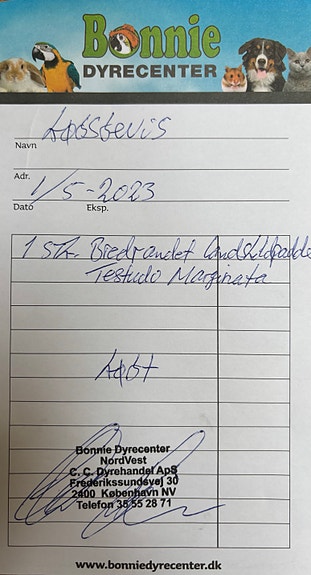 Bonnie
DYRECENTER
Købsbevis
Navn
Adr.
1/5-2023
Dato Eksp.
1 stk. Bredrandet landskildpadde
Testudo Marginata
købt
Bonnie Dyrecenter
NordVest
C. C. Dyrehandel ApS
Frederikssundsvej 30
2400 København NV
Telefon 38 55 28 71
www.bonniedyrecenter.dk